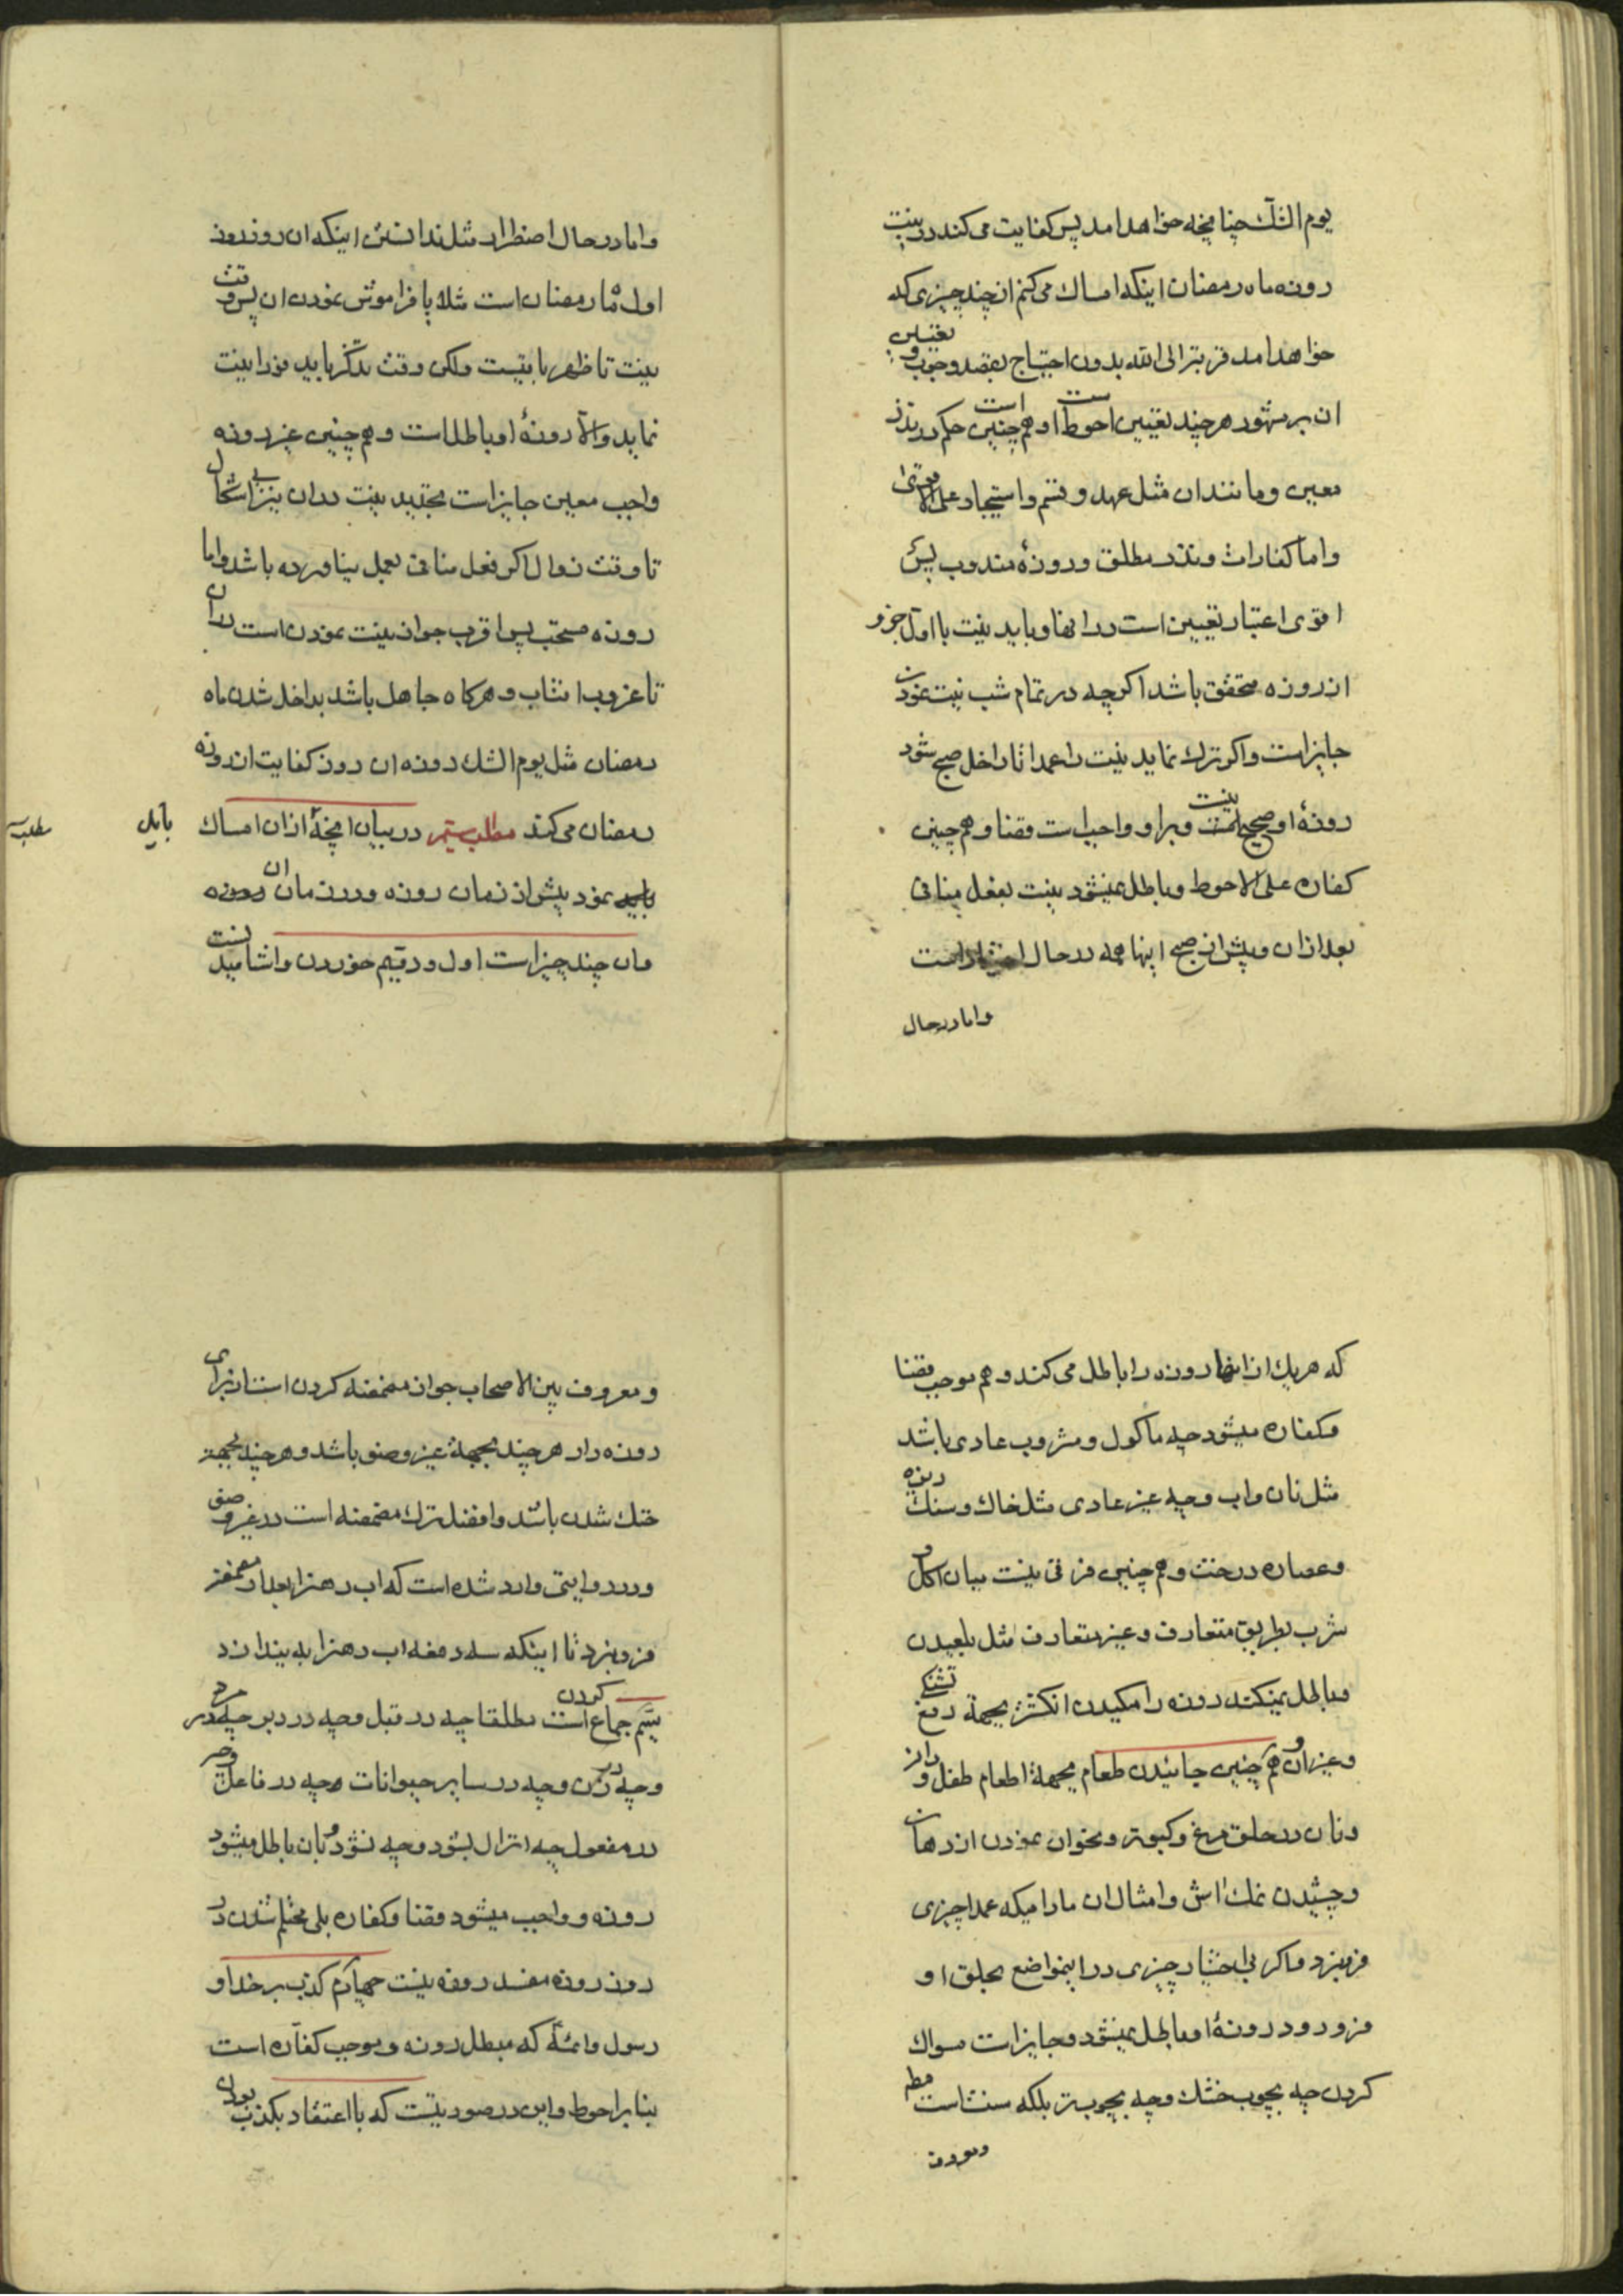 یوم الشک چنانچه خواهد امد پس کفایت می کند در نیت
روزه ماه رمضان اینکه امساک می کنم از چند چیزی که
خواهد امد قربة الی الله بدون احتیاج بقصد وجوب و تعیین
ان بر مشهور هر چند تعیین احوط است و هم چنین است حکم در نذر
معین و مانند ان مثل عهد و قسم و استیجار علی الاقوی
و اما کفارات و نذر مطلق و روزهٔ مندوب پس
اقوی اعتبار تعیین است در انها و باید نیت با اول جزو
از روزه متحقق باشد اکرچه در تمام شب نیت نمودن
جایز است و اکر ترک نماید نیت را عمدا تا داخل صبح شود
روزهٔ او صحیح نیست و بر او واجب است قضا و هم چنین
کفاره علی الاحوط و باطل نمیشود نیت بفعل منافی
بعد از ان و پیش از صبح اینها همه در حال اختیار است
و اما در حال
و اما در حال اضطرار مثل ندانستن اینکه ان روز روز
اول ماه رمضان است مثلا یا فراموش نمودن ان پس وقت
نیت تا ظهر باقیست ولکن وقت تذکر باید فورا نیت
نماید والا روزهٔ او باطل است و هم چنین غیر روزه
واجب معین جایز است تجدید نیت در ان نیز بی اشکال
تا وقت زوال اکر فعل منافی بعمل نیاورده باشد و اما
روزه مستحب پس اقرب جواز نیت نمودن است در ان
تا غروب افتاب و هرکاه جاهل باشد بداخل شدن ماه
رمضان مثل یوم الشک روزه ان روز کفایت از روزه
رمضان می کند مطلب سیم در بیان انچهٔ از ان امساک باید
مطلب
نمود پیش از زمان روزه و در زمان ان
و ان چند چیز است اول و دویم خوردن و اشامیدنست
که هریک از اینها روزه را باطل می کند و هم موجب قضا
و کفاره میشود چه ماکول و مشروب عادی باشد
مثل نان و اب و چه غیر عادی مثل خاک و سنک ریزه
و عصاره درخت و هم چنین فرقی نیست میان اکل و
شرب بطریق متعارف و غیر متعارف مثل بلعیدن
و باطل نمیکند روزه را مکیدن انکشتر بجهة رفع تشنکی
و غیر ان و هم چنین جائیدن طعام بجهة اطعام طفل و دانه
و نان در حلق مرغ و کبوتر و نحو ان نمودن از دهان
و چشیدن نمک اش و امثال ان مادامیکه عمدا چیزی
فرو نبرد و اکر بی اختیار چیزی در اینمواضع بحلق او
فرو رود روزهٔ او باطل نمیشود و جایز است مسواک
کردن چه بچوب خشک و چه بچوب تر بلکه سنت است مط
و معروف
و معروف بین الاصحاب جواز مضمضه کردن است از برای
روزه دار هر چند بجهة غیر وضو باشد و هر چند بجهة
خنک شدن باشد و افضل ترک مضمضه است در غیر وضو
و در روایتی وارد شده است که اب دهنرا بعد از مضمضه
فرو نبرد تا اینکه سه دفعه اب دهنرا به بیندازد
سیم جماع کردن است مطلقا چه در قبل و چه در دبر چه در مرد
و چه در زن و چه در سایر حیوانات و چه در فاعل و چه
در مفعول چه انزال بشود و چه نشود و بان باطل میشود
روزه و واجب میشود قضا و کفاره بلی محتلم شدن در
روز روزه مفسد روزه نیست چهارم کذب بر خدا و
رسول و ائمهٔ که مبطل روزه و موجب کفاره است
بنا بر احوط و این در صورتیست که با اعتقاد بکذب بودن